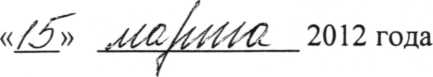 «15» марта 2012 года